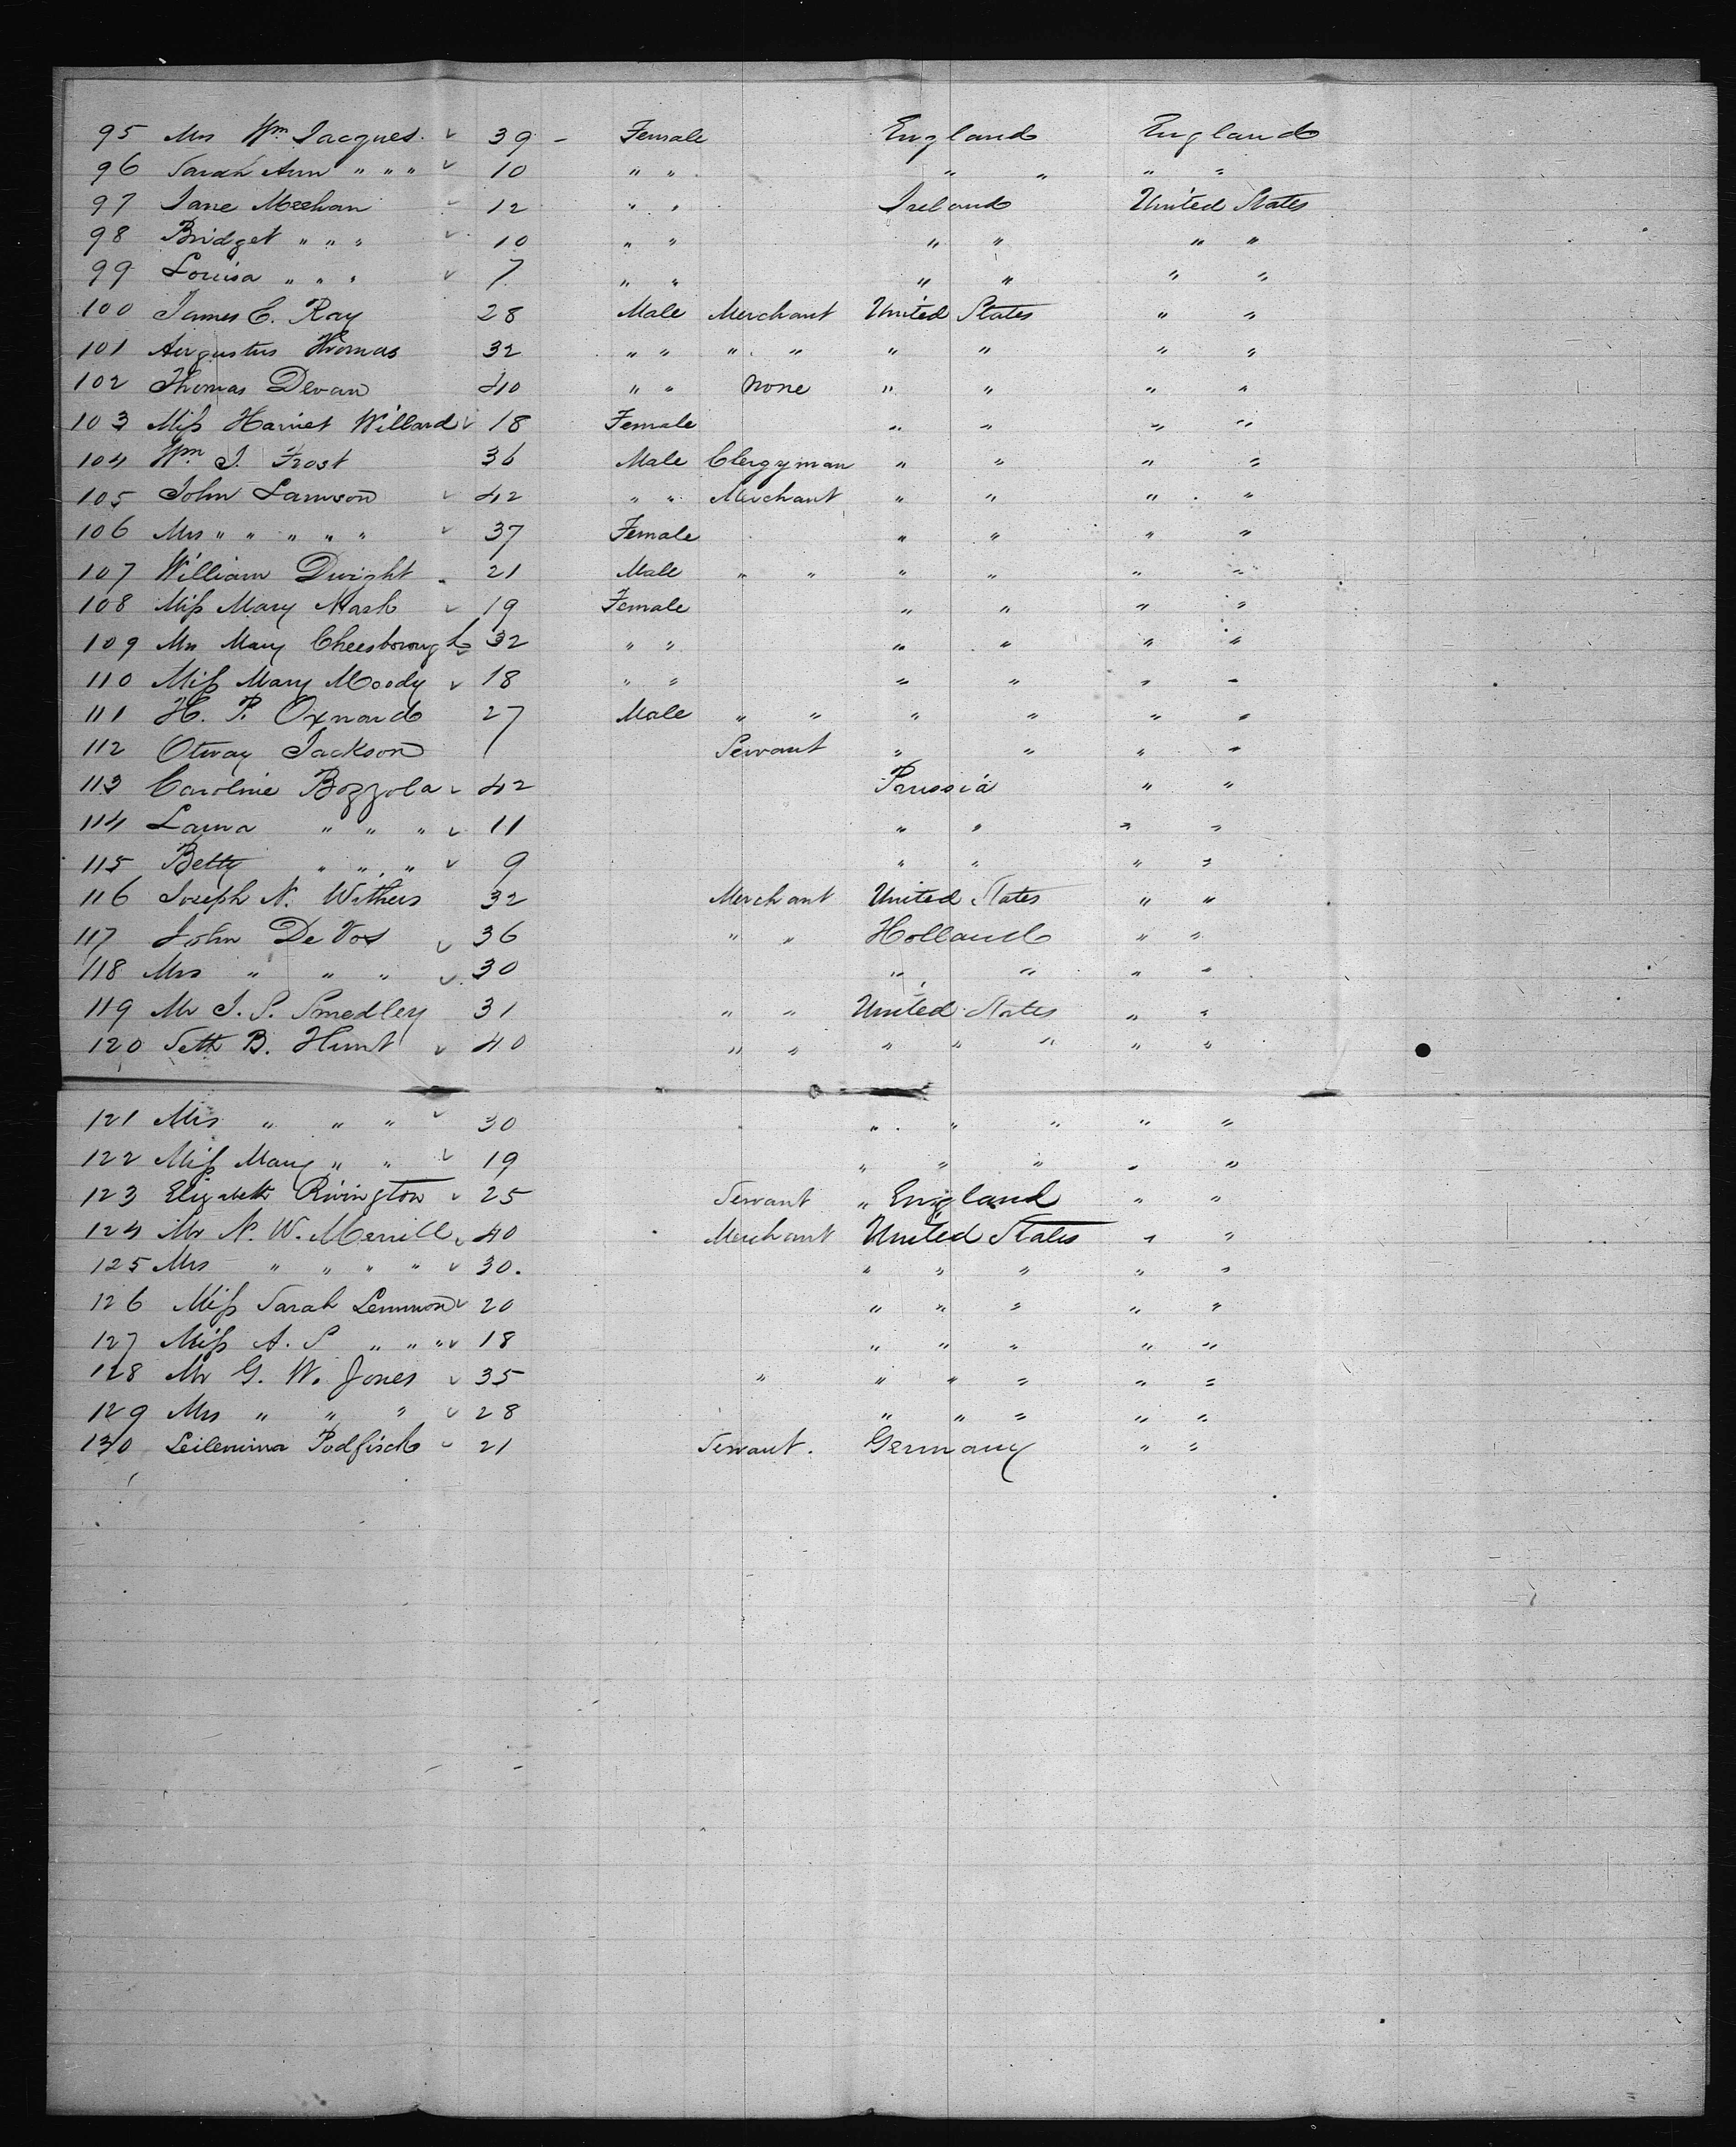 95 Mrs Wm Jacques 39 - Female England England
96 Sarah Ann " " " 10 " " " " " "
97 Jane Meehan 12 " " Ireland United States
98 Bridget " " " 10 " " " " " "
99 Louisa " " " 7 " " " " " "
100 James C. Ray 28 Male Merchant United States " "
101 Augustus Thomas 32 " " " " " " " "
102 Thomas Devan 40 " " None " " " "
103 Miss Harriet Willard 18 Female " " " "
104 Wm J. Frost 36 Male Clergyman " " " "
105 John Lamson 42 " " Merchant " " " "
106 Mrs " " " " " 37 Female " " " "
107 William Dwight 21 Male " " " " " "
108 Miss Mary Nash 19 Female " " " "
109 Mrs Mary Cheesborough 32 " " " " " "
110 Miss Mary Moody 18 " " " " " "
111 H. P. Oxnard 27 Male " " " " " "
112 Otway Jackson Servant " " " "
113 Caroline Bozzola 42 Prussia " "
114 Laura " " " 11 " " " "
115 Betty " " " 9 " " " "
116 Joseph N. Withers 32 Merchant United States " "
117 John De Vos 36 " " Holland " "
118 Mrs " " " 30 " " " "
119 Mr J. S. Smedley 31 " " United States " "
120 Seth B. Hunt 40 " " " " " " "
121 Mrs " " " 30 " " " " "
122 Miss Mary " " 19 " " " " "
123 Elizabeth Rivington 25 Servant " England " "
124 Mr N. W. Merrill 40 Merchant United States " "
125 Mrs " " " " 30. " " " " "
126 Miss Sarah Lemmon 20 " " " " "
127 Miss A. S " " " 18 " " " " "
128 Mr G. W. Jones 35 " " " " " "
129 Mrs " " " 28 " " " " "
130 Podfisch 21 Servant. Germany " "